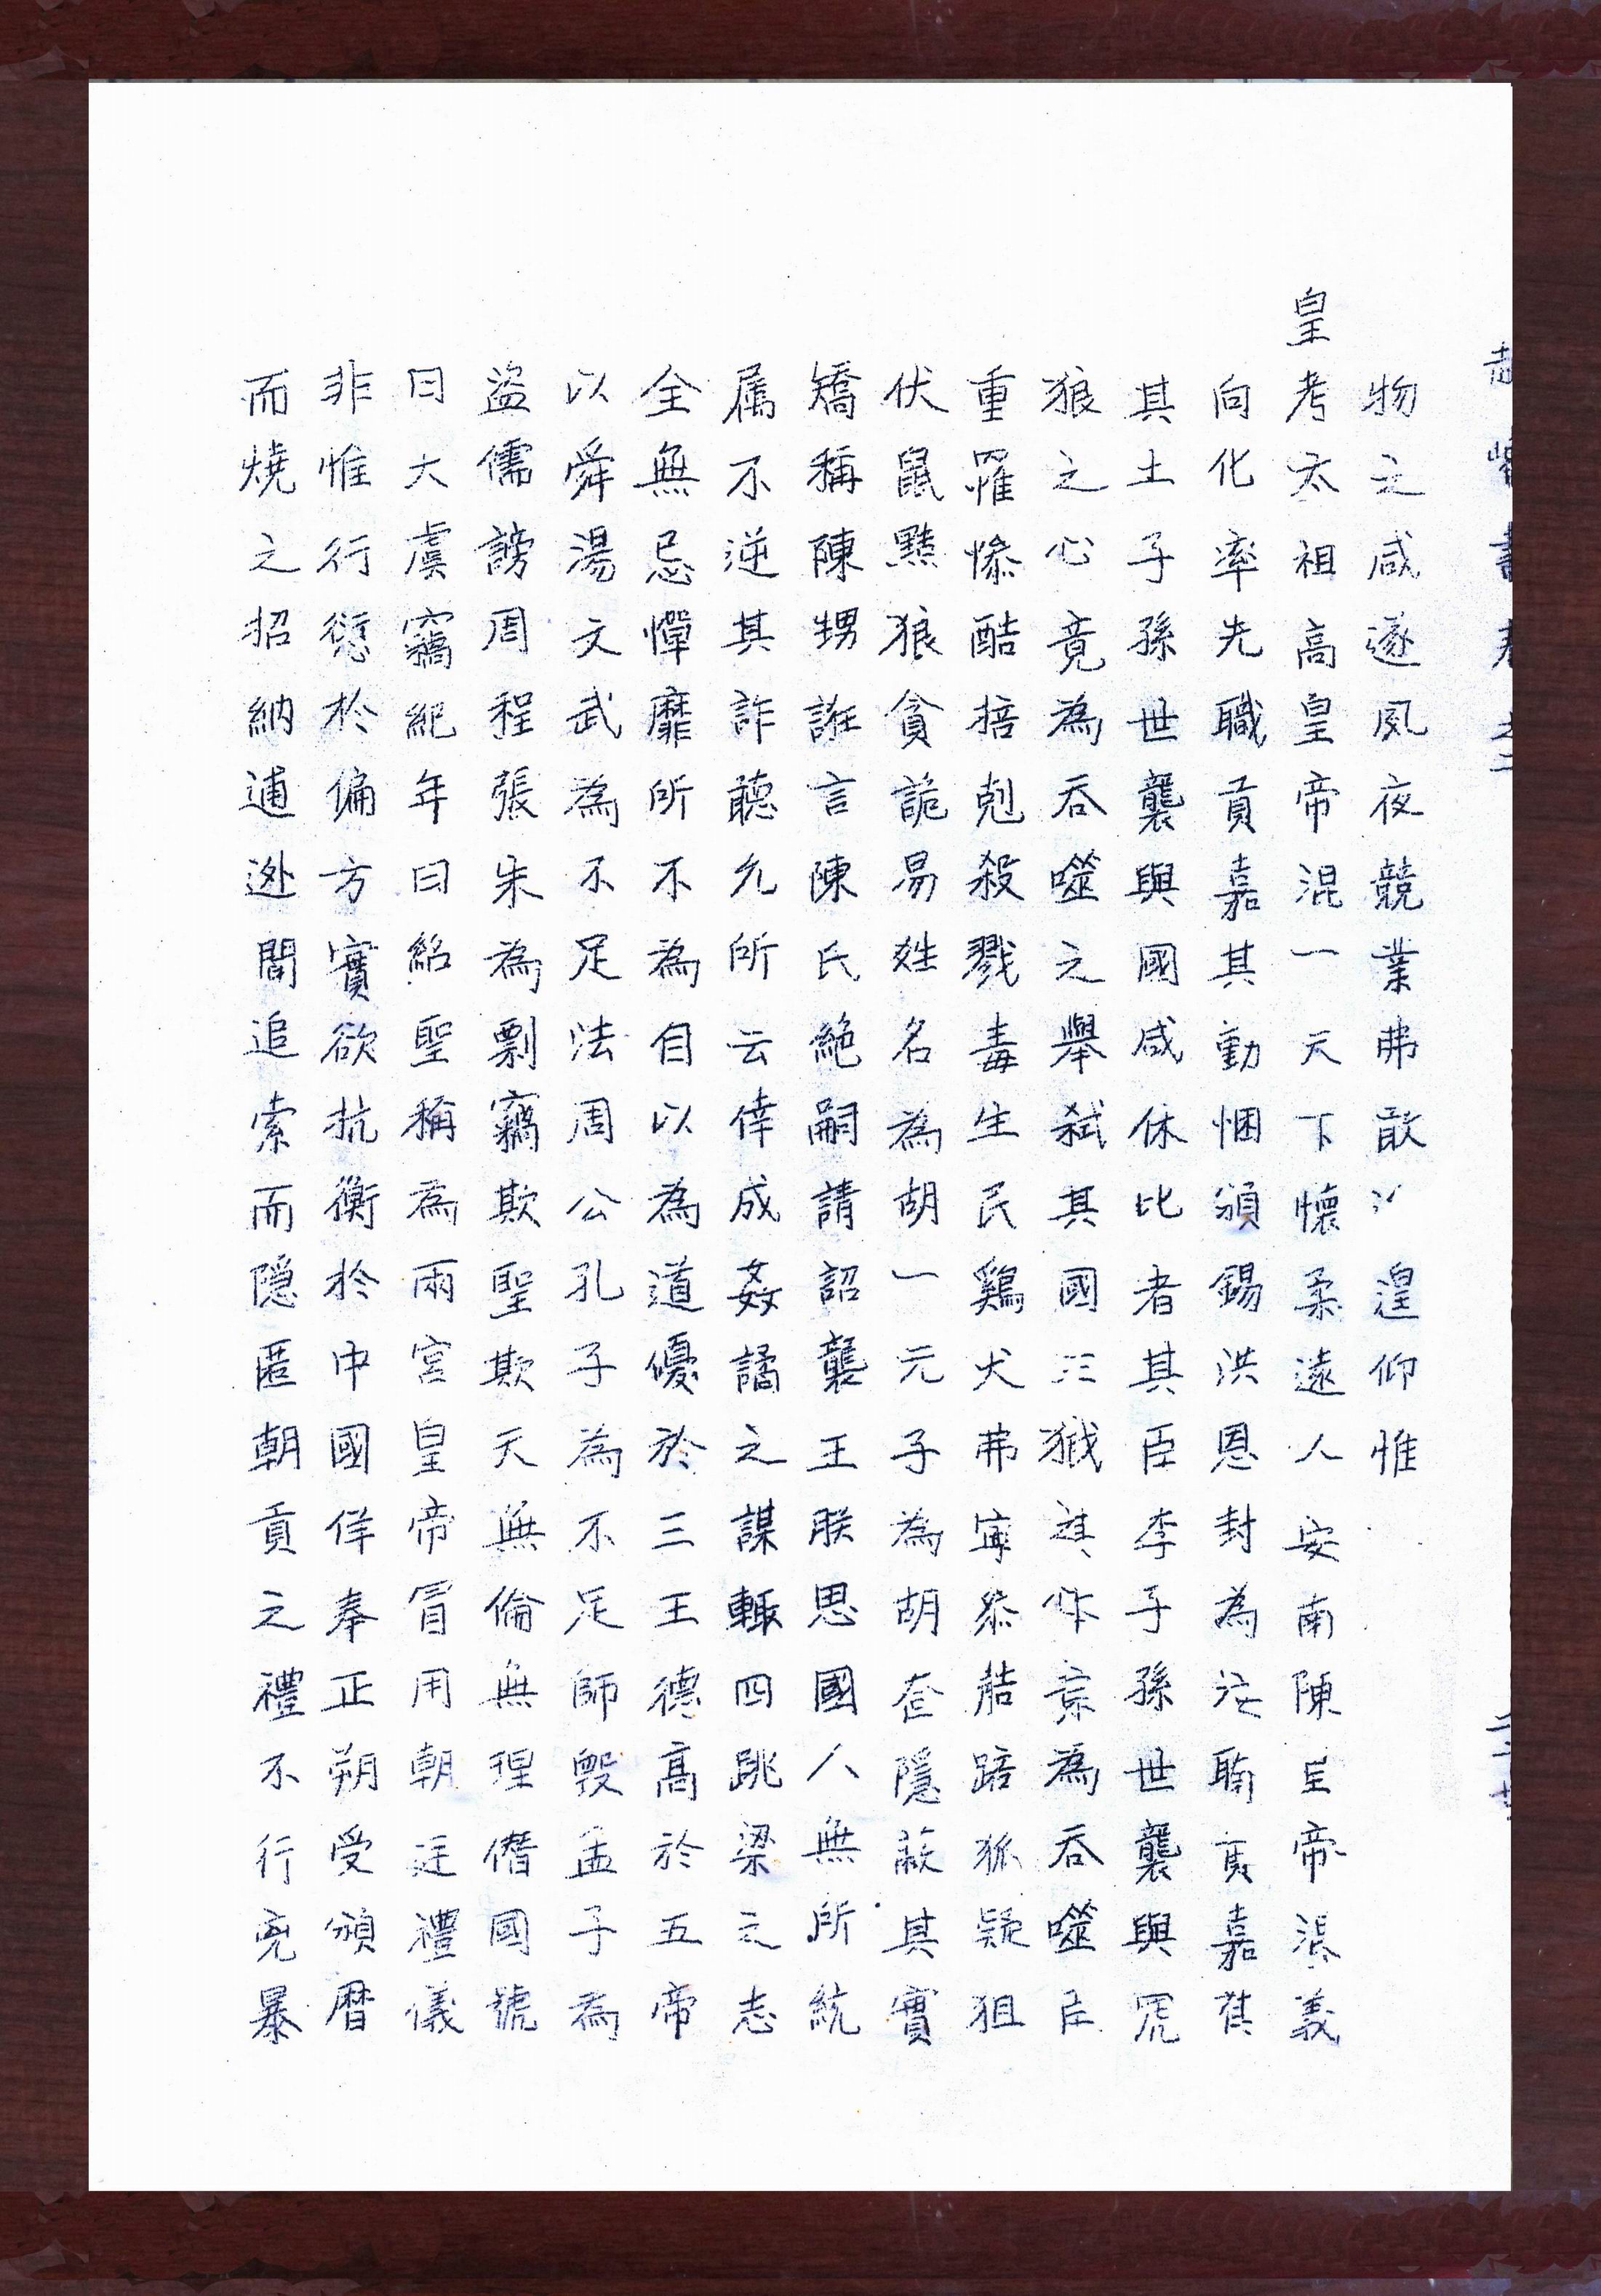 書
物之咸遂夙夜競業弗敢遑仰惟
皇考太祖高皇帝混一天下懷柔遠人安南陳帝義
向化率先職貢嘉其勤悃頒錫洪恩封為嘉其
其土子孫世襲與國咸休比者其臣李子孫世襲與
狼之心竟為吞噬之舉弒其國為吞噬
重罹慘酷掊剋殺戮毒生民鷄犬弗寧狐疑狙
伏鼠黠狼貪詭易姓名為胡一元子為胡𡗨隱蔽其實
矯稱陳甥誑言陳氏絕嗣請詔襲王朕思國人無所統
属不逆其詐聽允所云倖成姦譎之謀輒四跳梁之志
全無忌憚靡所不為自以為道優於三王德高於五帝
以舜湯文武為不足法周公孔子為不足師毀孟子為
盜儒謗周程張朱為剽竊欺聖欺天無倫無理僭國號
曰大虞竊紀年曰紹聖稱為兩宮皇帝冒用朝廷禮儀
非惟行愆於偏方實欲抗衡於中國佯奉正朔受頒曆
而燒之招納逋逃聞追索而隱匿朝貢之禮不行兇暴